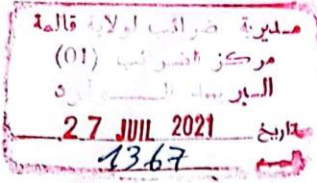 مديرية ضرائب لولاية قالمة
مركز الضرائب (01)
البريد الـــــوارد
تاريخ 27 JUIL 2021
1367